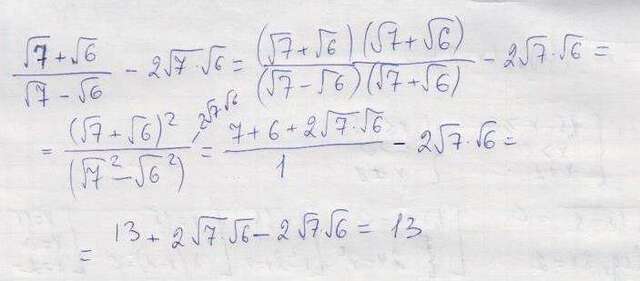 (√7 + √6)/(√7 − √6) − 2√7 · √6 = (√7 + √6)(√7 + √6)/(√7 − √6)(√7 + √6) − 2√7 · √6 =
= (√7 + √6)²/(√7² − √6²) − 2√7 √6 = (7 + 6 + 2√7 · √6)/1 − 2√7 · √6 =
= 13 + 2√7 √6 − 2√7 √6 = 13